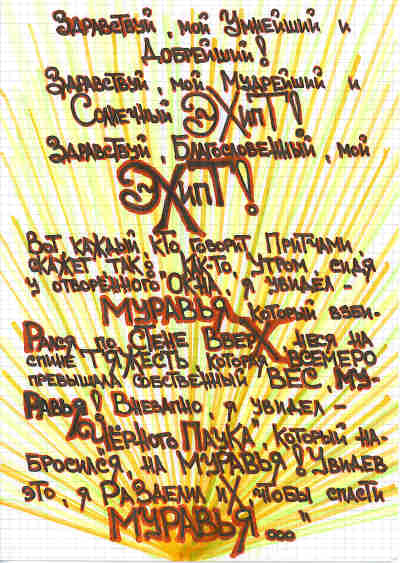 Здравствуй, мой Умнейший и
Добрейший!
Здравствуй, мой Мудрейший и
Солнечный Эхипт!
Здравствуй, Благословенный, мой
Эхипт!
Вот, каждый, кто, говорит Притчами,
скажет так: "как-то, утром, сидя
у отворённого окна, я увидел -
МУРАВЬЯ, который взби-
Рался по стене ВВерХ, неся на
спине ТЯЖЕСТЬ, которая всемеро
превышала собственный ВЕС, МУ-
Равья! Внезапно, я увидел -
Чёрного Паука, который на-
бросился, на МУРАВЬЯ! Увидев
это, я Разделил иХ чтобы спасти
МУРАВЬЯ..."